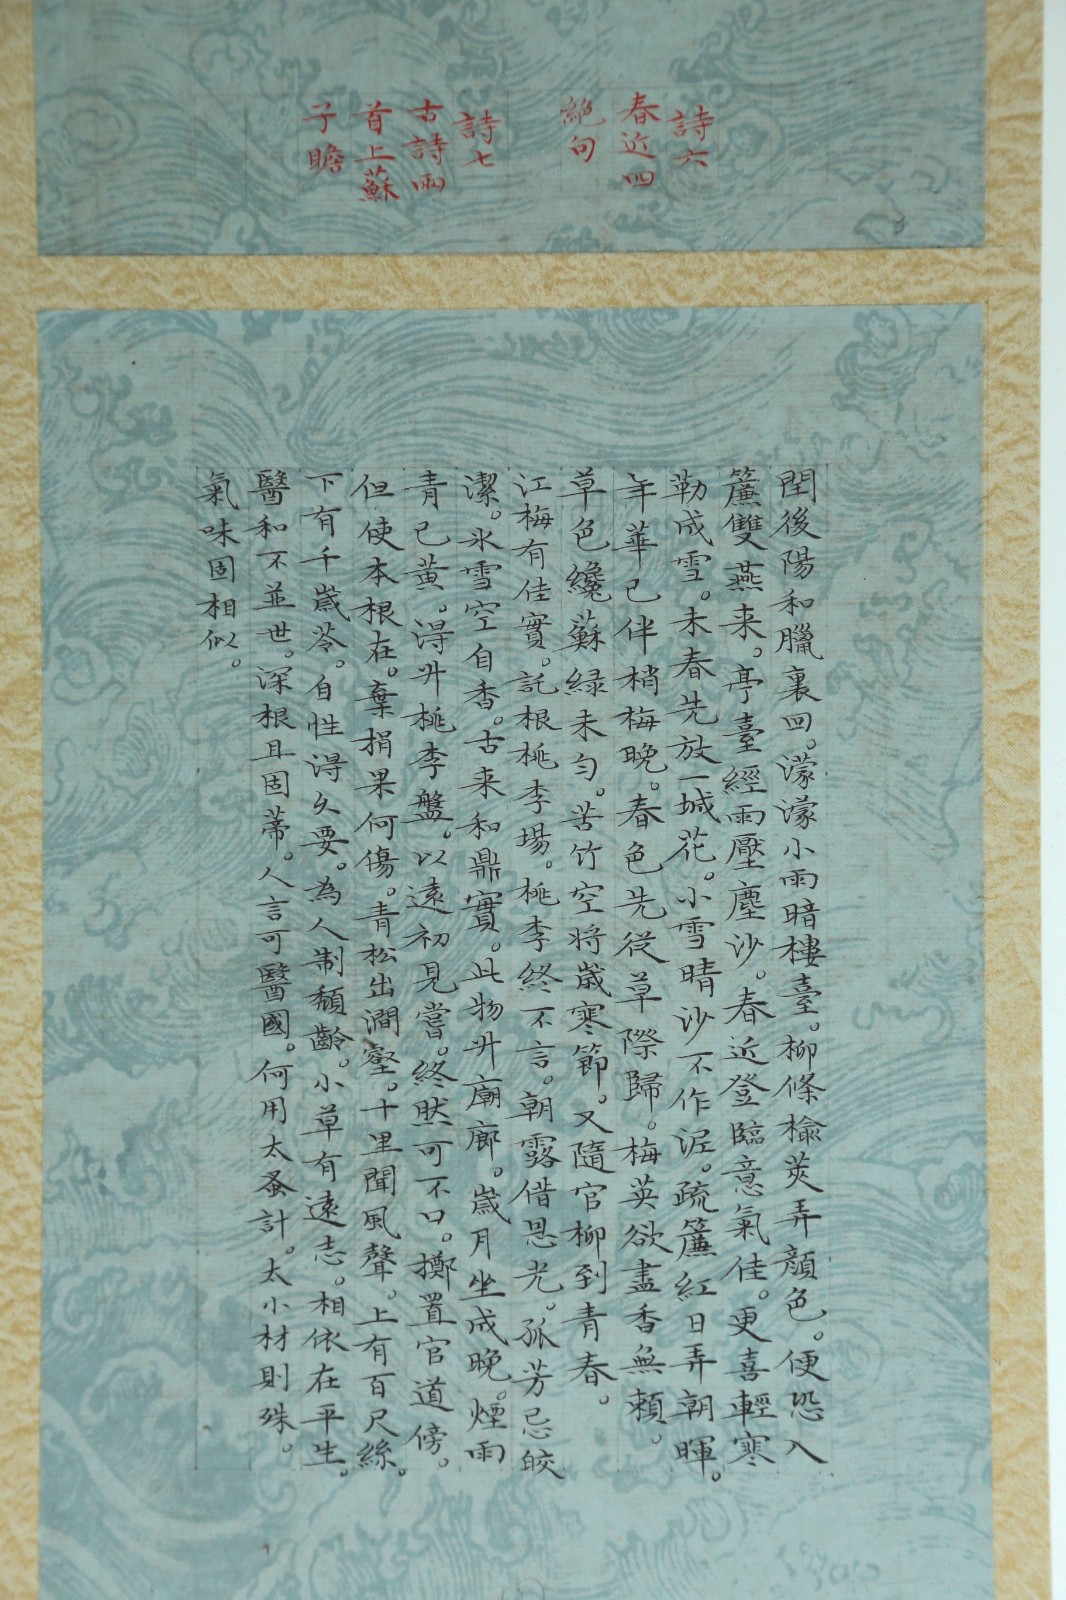 詩六
春近四
絕句
詩七
古詩兩
首上蘇
子瞻
閏後陽和臘裏回。濛濛小雨暗樓臺。柳條榆莢弄顏色。便恐入
簾雙燕来。亭臺經雨壓塵沙。春近登臨意氣佳。更喜輕寒
勒成雪。未春先放一城花。小雪晴沙不作泥。疏簾紅日弄朝暉。
年華已伴梢梅晚。春色先従草際歸。梅英欲盡香無賴。
草色纔蘇緑未勻。苦竹空将歳寒節。又隨官柳到青春。
江梅有佳實。託根桃李場。桃李終不言。朝露借恩光。孤芳忌皎
潔。冰雪空自香。古来和鼎實。此物升廟廊。歳月坐成晚。煙雨
青已黃。得升桃李盤。以遠初見嘗。終然可不口。擲置官道傍。
但使本根在。棄捐果何傷。青松出澗壑。十里聞風聲。上有百尺絲。
下有千歳苓。自性得久要。為人制頹齡。小草有遠志。相依在平生。
醫和不並世。深根且固蒂。人言可醫國。何用太蚤計。太小材則殊。
氣味固相似。